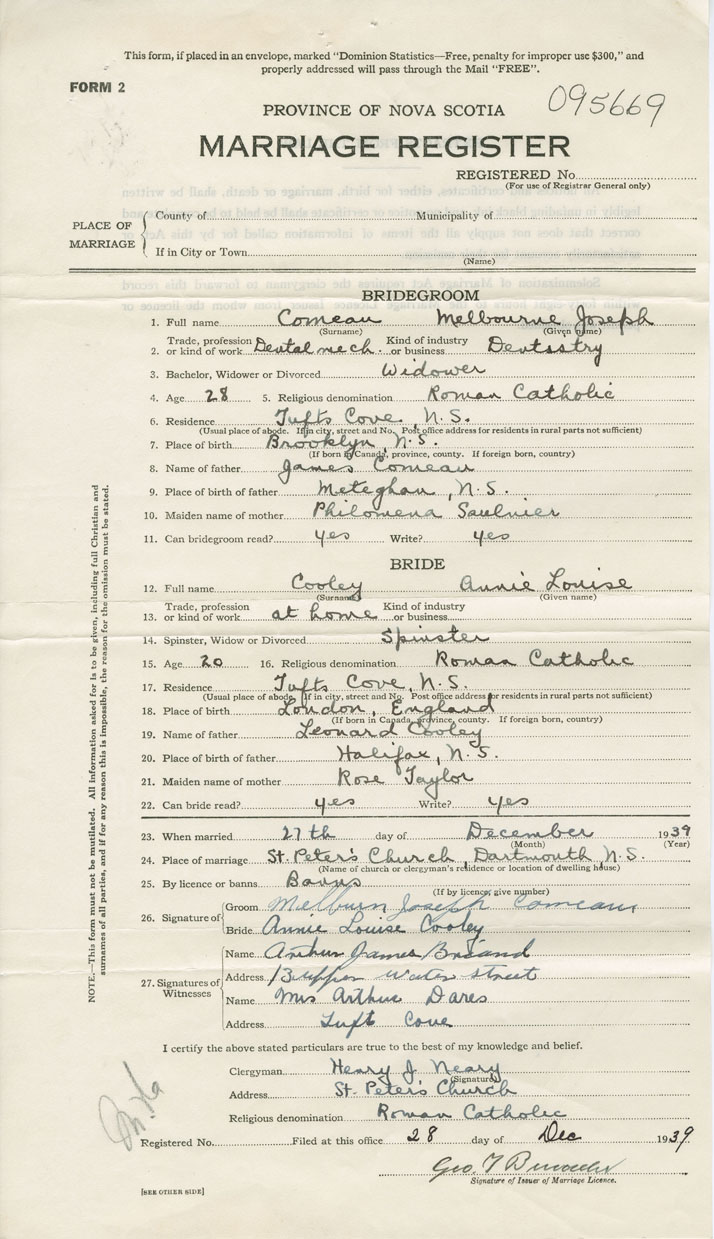 This form, if placed in an envelope, marked "Dominion Statistics—Free, penalty for improper use $300," and
properly addressed will pass through the Mail "FREE".
FORM 2
095669
PROVINCE OF NOVA SCOTIA
MARRIAGE REGISTER
REGISTERED No.
(For use of Registrar General only)
PLACE OF MARRIAGE
County of Municipality of
If in City or Town
(Name)
BRIDEGROOM
1. Full name Comeau Melbourne Joseph
(Surname) (Given name)
2. Trade, profession or kind of work Dental mech. Kind of industry or business Dentsstry
3. Bachelor, Widower or Divorced Widower
4. Age 28 5. Religious denomination Roman Catholic
6. Residence Tufts Cove, N.S.
(Usual place of abode. If in city, street and No. Post office address for residents in rural parts not sufficient)
7. Place of birth Brooklyn, N.S.
(If born in Canada, province, county. If foreign born, country)
8. Name of father James Comeau
9. Place of birth of father Meteghan, N.S.
10. Maiden name of mother Philomena Saulnier
11. Can bridegroom read? yes Write? yes
BRIDE
12. Full name Cooley Annie Louise
(Surname) (Given name)
13. Trade, profession or kind of work at home Kind of industry or business
14. Spinster, Widow or Divorced Spinster
15. Age 20 16. Religious denomination Roman Catholic
17. Residence Tufts Cove, N.S.
(Usual place of abode. If in city, street and No. Post office address for residents in rural parts not sufficient)
18. Place of birth London, England
(If born in Canada, province, county. If foreign born, country)
19. Name of father Leonard Cooley
20. Place of birth of father Halifax, N.S.
21. Maiden name of mother Rose Taylor
22. Can bride read? yes Write? yes
23. When married 27th day of December 1939
(Month) (Year)
24. Place of marriage St. Peter's Church, Dartmouth, N.S.
(Name of church or clergyman's residence or location of dwelling house)
25. By licence or banns Banns
(If by licence, give number)
26. Signature of
Groom Melburn Joseph Comeau
Bride Annie Louise Cooley
27. Signatures of Witnesses
Name Arthur James Briand
Address upper water street
Name Mrs Arthur Dares
Address Tuft Cove
I certify the above stated particulars are true to the best of my knowledge and belief.
Clergyman Henry J. Neary
(Signature)
Address St. Peter's Church
Religious denomination Roman Catholic
Registered No. Filed at this office 28 day of Dec 1939
Geo. T
Signature of Issuer of Marriage Licence.
[SEE OTHER SIDE]
NOTE.—This form must not be mutilated. All information asked for is to be given, including full Christian and
surnames of all parties, and if for any reason this is impossible, the reason for the omission must be stated.